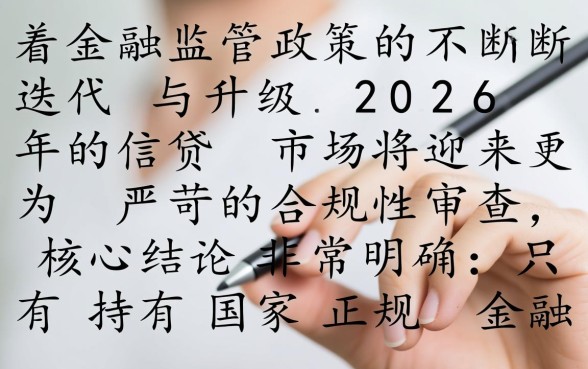 着金融监管政策的不断断
迭代 与升级. 2026
年的信贷 市场将迎来更
为 严苛的合规性审查，
核心结论 非常明确：只
有 持有 国家 正规 金融